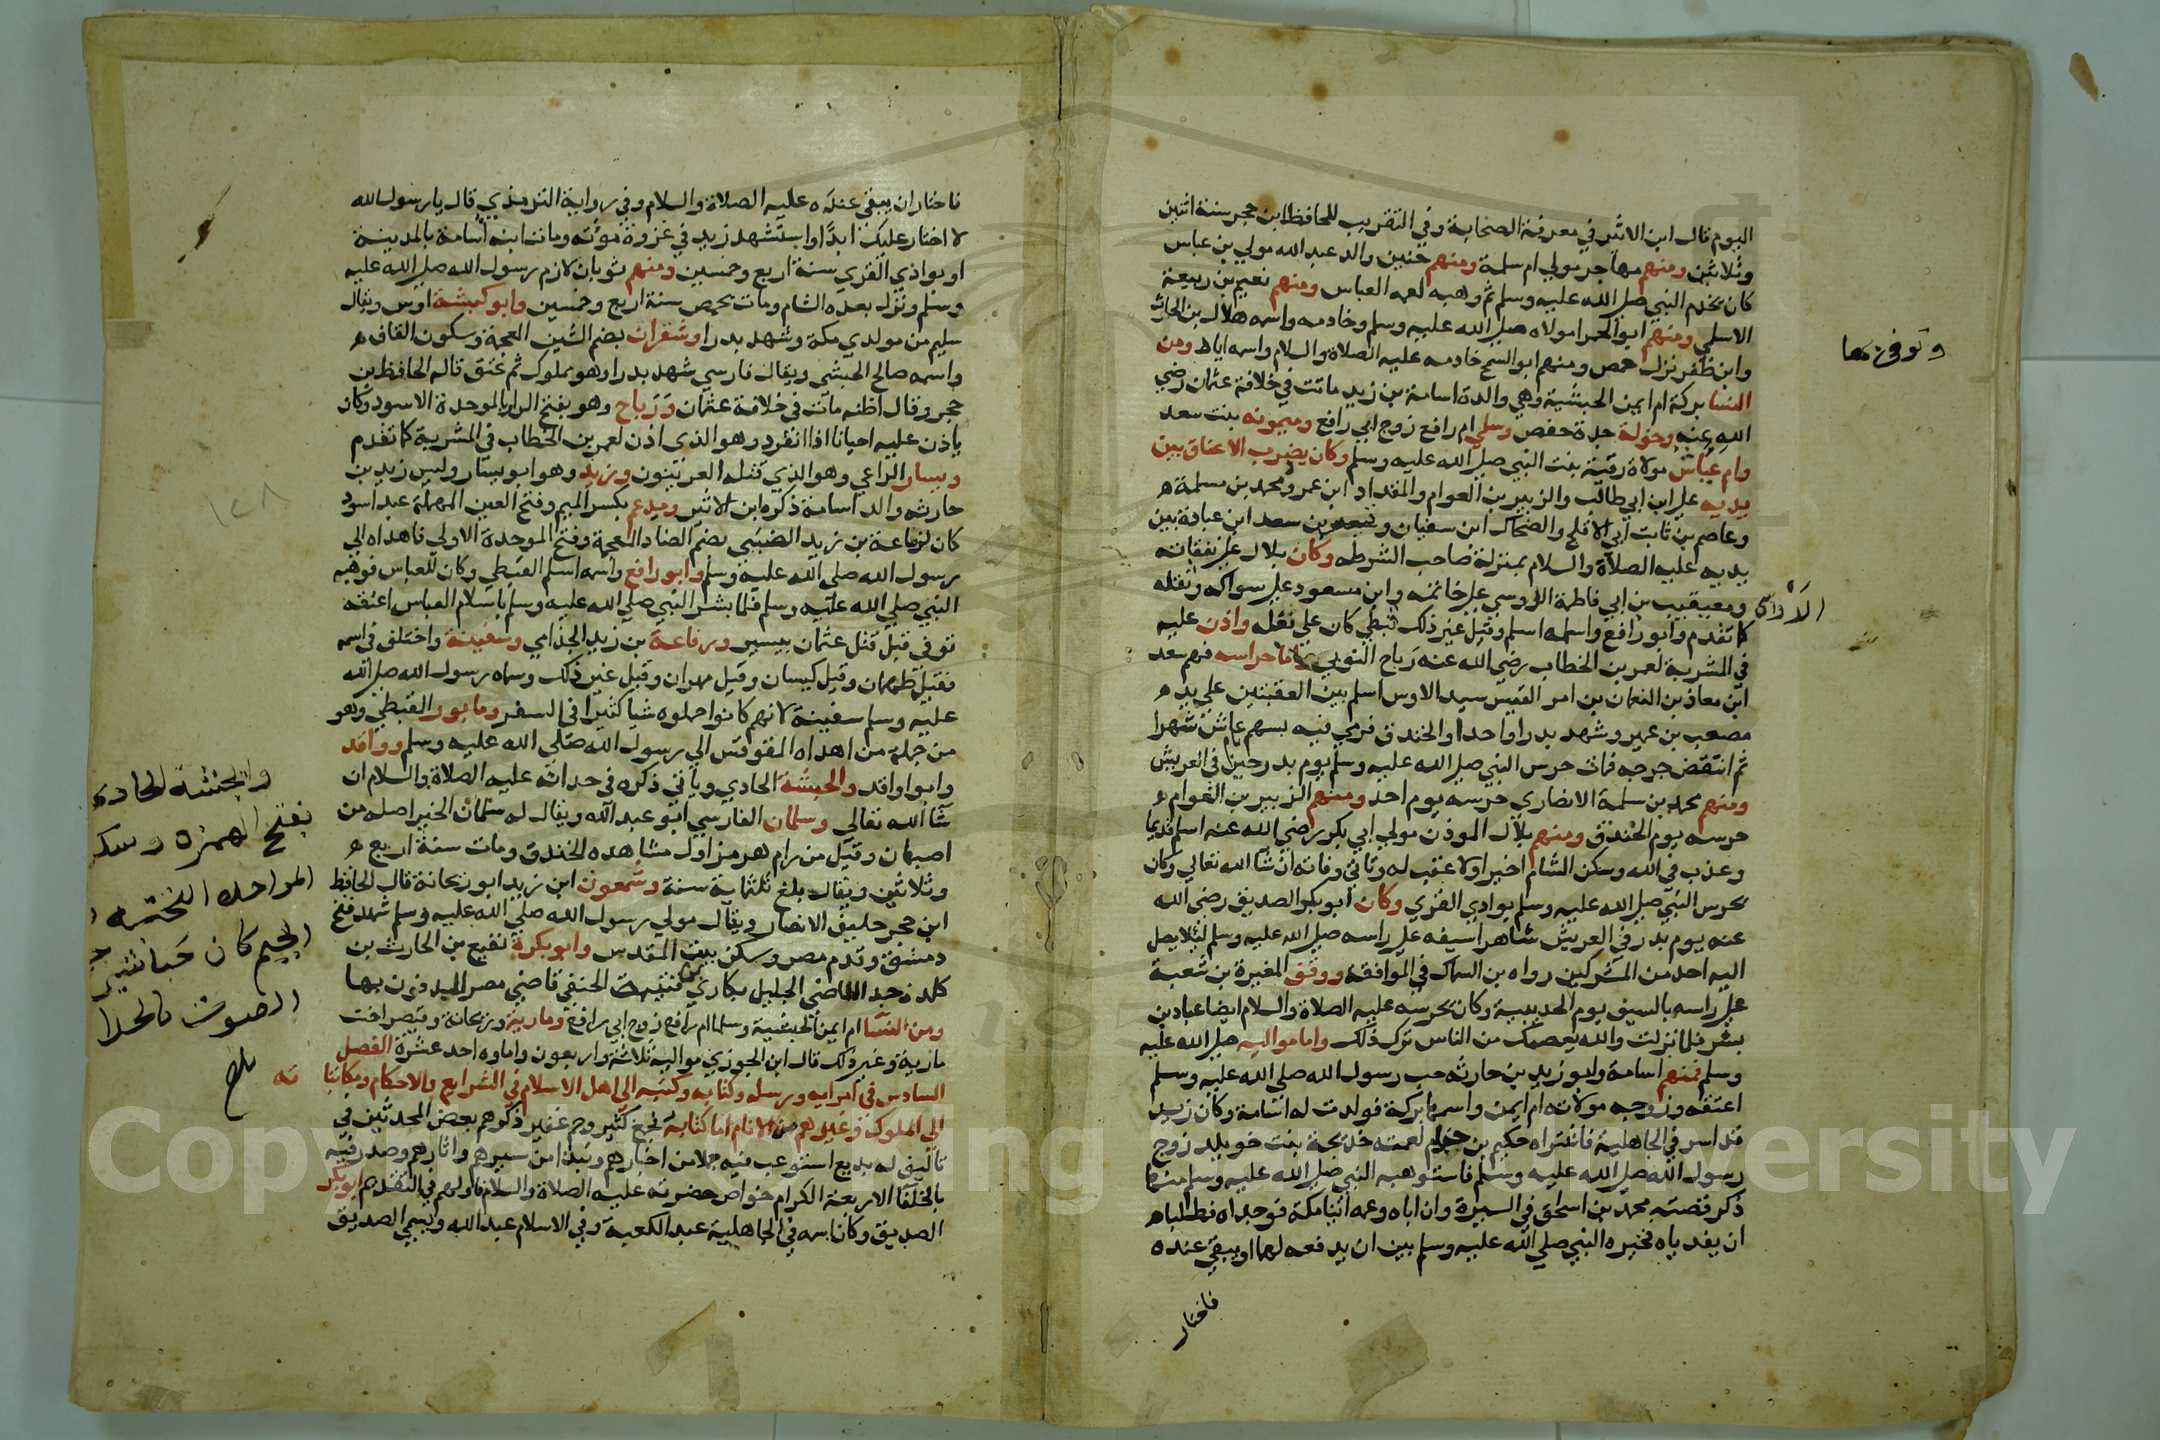 اليوم قال ابن الاثير في معرفة الصحابة وفي التقريب للحافظ ابن حجر سنة اثنين
وثلاثين ومنهم مهاجر مولي ام سلمة ومنهم حنين والد عبد الله مولي بن عباس
كان يخدم النبي صلي الله عليه وسلم ثم وهبه لعمه العباس ومنهم نعيم بن ربيعة
الاسلمي ومنهم ابو الحمرا مولاه صلي الله عليه وسلم وخادمه واسمه هلال بن الحارث
وابن ظفر نزل حمص ومنهم ابو السمح خادمه عليه الصلاة والسلام واسمه اياد ومن
وتوفي بها
النسا بركة ام ايمن الحبشية وهي والدة اسامة بن زيد ماتت في خلافة عثمان رضي
الله عنه وخولة جدة حفص وسلمي ام رافع زوج ابي رافع وميمونه بنت سعد
وام عياش مولاة رقية بنت النبي صلي الله عليه وسلم وكان يضرب الاعناق بين
يديه علي ابن ابي طالب والزبير بن العوام والمقداد ابن عمرو ومحمد بن مسلمة
وعاصم بن ثابت ابن ابي الافلح والضحاك ابن سفيان وقيس بن سعد ابن عبادة بين
يديه عليه الصلاة والسلام بمنزلة صاحب الشرطه وكان بلال علي نفقاته
ومعيقيب بن ابي فاطمة الدوسي علي خاتمه وابن مسعود علي سواكه ونعله
كما تقدم وابو رافع واسمه اسلم وقيل غير ذلك قبطي كان علي ثقله واذن عليه
في المشربة لعمر بن الخطاب رضي الله عنه رباح النوبي واما حراسه فمنهم سعد
ابن معاذ بن النعمان بن امر القيس سيد الاوس اسلم بين العقبتين علي يد
مصعب بن عمير وشهد بدرا واحدا والخندق فرمي فيه بسهم عاش شهرا
ثم انتقض جرحه فمات حرس النبي صلي الله عليه وسلم يوم بدر حين نام في العريش
ومنهم محمد بن سلمة الانصاري حرسه يوم احد ومنهم الزبير بن العوام
حرسه يوم الخندق ومنهم بلال الموذن مولي ابي بكر رضي الله عنه اسلم قديما
وعذب في الله وسكن الشام اخيرا ولا عقب له وتاتي وفاته ان شا الله تعالي وكان
يحرس النبي صلي الله عليه وسلم بوادي القري وكان ابو بكر الصديق رضي الله
عنه يوم بدر في العريش شاهرا سيفه علي راسه صلي الله عليه وسلم ليلا يصل
اليه احد من المشركين رواه بن السماك في الموافقه ووقف المغيرة بن شعبة
علي راسه بالسيف يوم الحديبية وكان يحرسه عليه الصلاة والسلام ايضا عباد بن
بشر فلما نزلت والله يعصمك من الناس ترك ذلك واما مواليه صلي الله عليه
وسلم فمنهم اسامة وابو زيد بن حارثه حب رسول الله صلي الله عليه وسلم
اعتقه وزوجه مولاته ام ايمن واسمها بركة فولدت له اسامة وكان زيد
قد اسر في الجاهلية فاشتراه حكيم بن حزام لعمته خديجة بنت خويلد زوج
رسول الله صلي الله عليه وسلم فاستوهبه النبي صلي الله عليه وسلم منها
ذكر قصته محمد بن اسحق في السيرة وان اباه وعمه اتيا مكة فوجداه فطلبا
ان يفدياه فخيره النبي صلي الله عليه وسلم بين ان يدفعه لهما او يبقي عنده
فاختار
فاختار ان يبقي عنده عليه الصلاة والسلام وفي رواية الترمذي قال يا رسول الله
لا اختار عليك ابدا واستشهد زيد في غزوة مؤته ومات ابنه اسامة بالمدينة
او بوادي القري سنة اربع وخمسين ومنهم ثوبان لازم رسول الله صلي الله عليه
وسلم ونزل بعده الشام ومات بحمص سنة اربع وخمسين وابو كبشة اوس ويقال
سليم من مولدي مكة وشهد بدرا وشقران بضم الشين المعجمة وسكون القاف
واسمه صالح الحبشي ويقال فارسي شهد بدرا وهو مملوك ثم عتق قاله الحافظ بن
حجر وقال اظنه مات في خلافة عثمان ورباح وهو بفتح الرا بالموحدة الاسود وكان
ياذن عليه احيانا اذا انفرد وهو الذي اذن لعمر بن الخطاب في المشربة كما تقدم
ويسار الراعي وهو الذي قتله العرنيون وزيد وهو ابو يسار وليس زيد بن
حارثه والد اسامة ذكره ابن الاثير ومدعم بكسر الميم وفتح العين المهملة عبد اسود
كان لرفاعة بن زيد الضبيبي بضم الضاد المعجمة وفتح الموحدة الاولي فاهداه الي
رسول الله صلي الله عليه وسلم وابو رافع واسمه اسلم القبطي وكان للعباس فوهبه
النبي صلي الله عليه وسلم فلما بشر النبي صلي الله عليه وسلم باسلام العباس اعتقه
توفي قبل قتل عثمان بيسير ورفاعة بن زيد الجذامي وسفينة واختلف في اسمه
فقيل طهمان وقيل كيسان وقيل مهران وقيل غير ذلك وسماه رسول الله صلي الله
عليه وسلم سفينة لانهم كانوا حملوه شيا كثيرا في السفر ومابور القبطي وهو
من جملة من اهداه المقوقس الي رسول الله صلي الله عليه وسلم وواقد
وابو واقد والحبشة الحادي وياتي ذكره في حداته عليه الصلاة والسلام ان
شا الله تعالي وسلمان الفارسي ابو عبد الله ويقال له سلمان الخير اصله من
اصبهان وقيل من رام هرمز اول مشاهده الخندق ومات سنة اربع
وثلاثين ويقال بلغ ثلثماية سنة وشمعون ابن زيد ابو ريحانة قال الحافظ
ابن حجر حليف الانصار ويقال مولي رسول الله صلي الله عليه وسلم شهد فتح
دمشق وقدم مصر وسكن ببيت المقدس وابو بكرة نفيع بن الحارث بن
كلدة جد القاضي الجليل بكار بن قتيبة الحنفي قاضي مصر المدفون بها
ومن النسا ام ايمن الحبشية وسلما ام رافع زوج ابي رافع ومارية وريحانة وقيصر اخت
مارية وغير ذلك قال ابن الجوزي مواليه ثلاثة واربعون واماوه احد عشرة الفصل
السادس في امرايه ورسله وكتابه وكتبه الي اهل الاسلام في الشرايع والاحكام ومكاتباته
الي الملوك وغيرهم من الانام اما كتابه فجمع كثير وجم غفير ذكرهم بعض المحدثين في
تاليف له بديع استوعب فيه جملا من اخبارهم ونبذا من سيرهم واثارهم وصدر فيه
بالخلفا الاربعة الكرام خواص حضرته عليه الصلاة والسلام فاولهم في التقدم ابو بكر
الصديق وكان اسمه في الجاهلية عبد الكعبة وفي الاسلام عبد الله وسمي الصديق
وانجشة الحادي
بفتح الهمزة وسكو
الجيم كان حبا
الصوت بالحدا
صح
١٢٨
Copyright © King Saud University